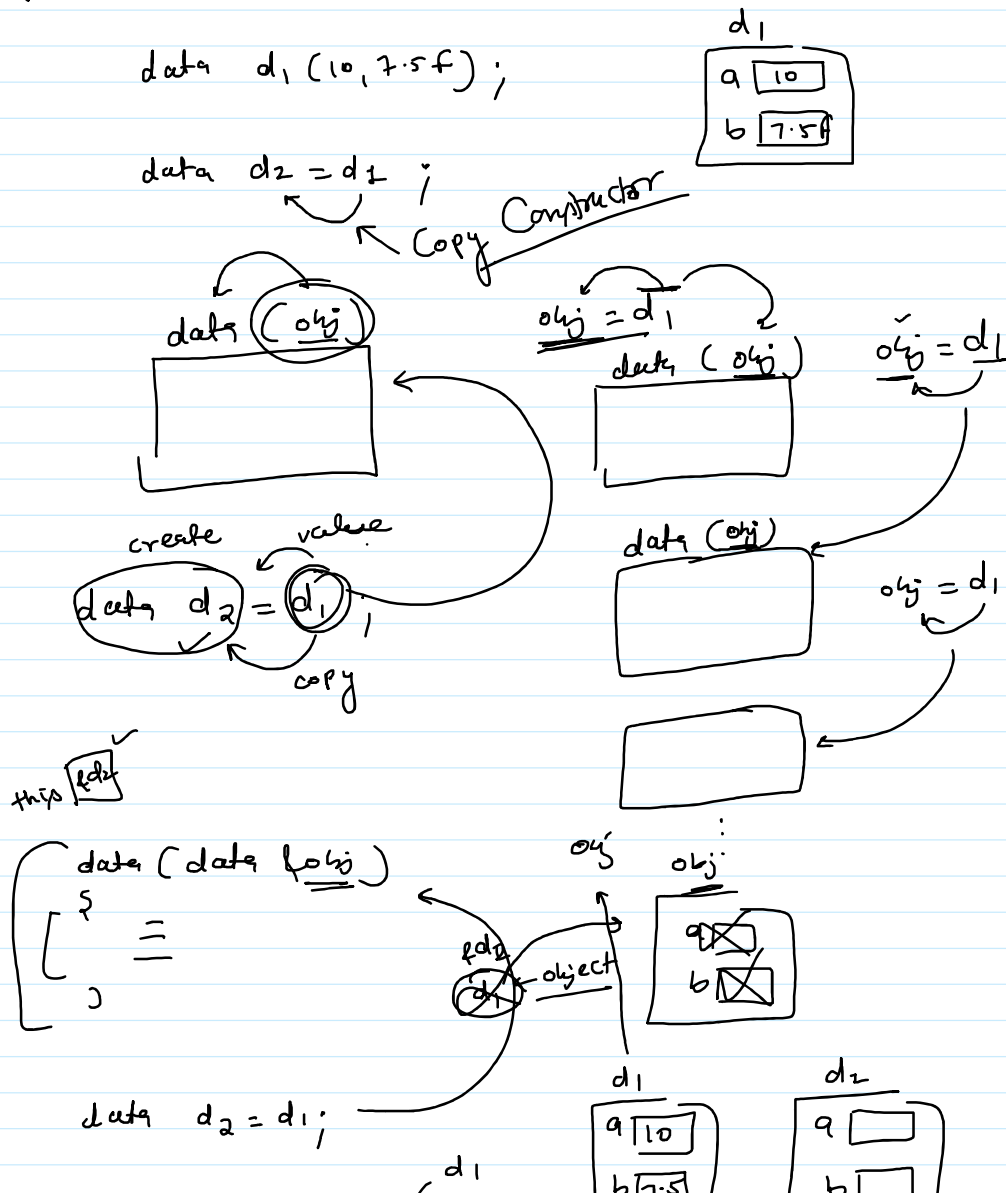 d1
data d1 (10, 7.5f) ;
a 10
b 7.5f
data d2 = d1 ;
Copy Constructor
data (obj)
obj = d1
data (obj)
obj = d1
create value
data d2 = d1 ;
copy
data (obj)
obj = d1
this &d2
data (data &obj)
{
}
obj
obj
a
b
d1
object
data d2 = d1;
d1
a 10
b 7.5
d2
a
b
d1